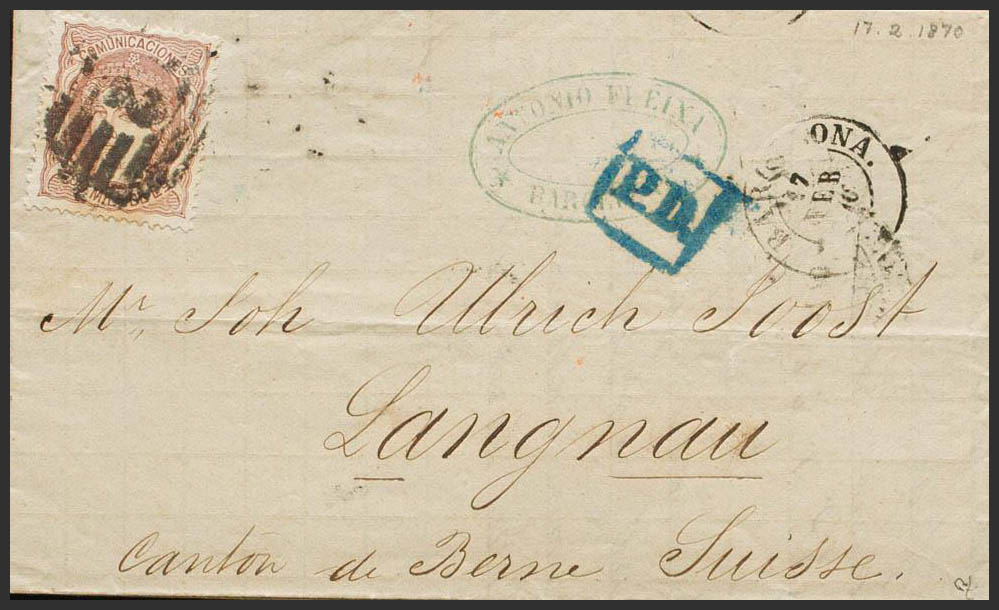 17.2.1870
COMUNICACIONES
ANTONIO FLEIXA
P.D.
17
FEB
Mr. Joh Ulrich Joost
Langnau
Canton de Berne Suisse.